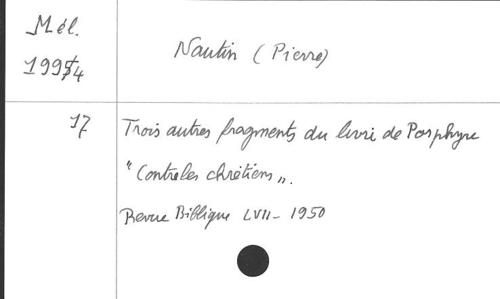 Mél.
1994
Nautin (Pierre)
17
Trois autres fragments du livre de Porphyre
"Contre les chrétiens".
Revue Biblique LVII - 1950